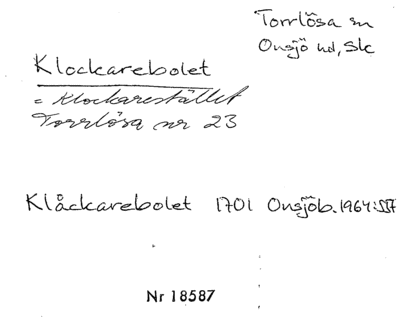 Torrlösa sn
Onsjö hd, Sk
Klockarebolet
= Klockarestället
Torrlösa nr 23
Klåckarebolet 1701 Onsjöb. 1964:
Nr 18587